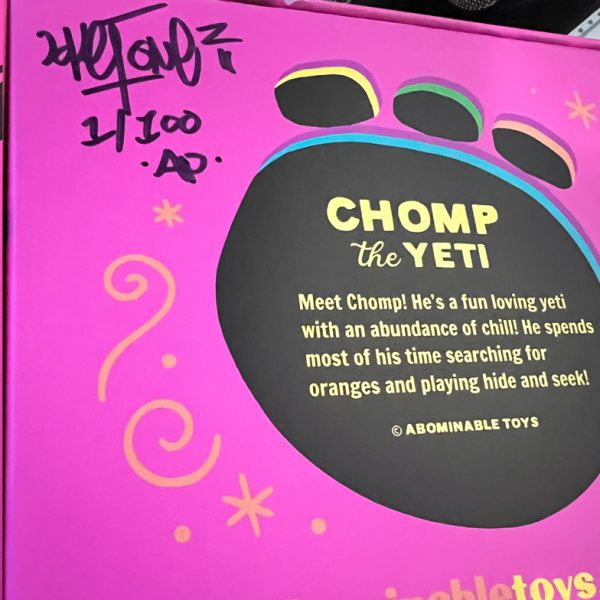 1/100
AP.
CHOMP
the YETI
Meet Chomp! He's a fun loving yeti
with an abundance of chill! He spends
most of his time searching for
oranges and playing hide and seek!
© ABOMINABLE TOYS
toys.